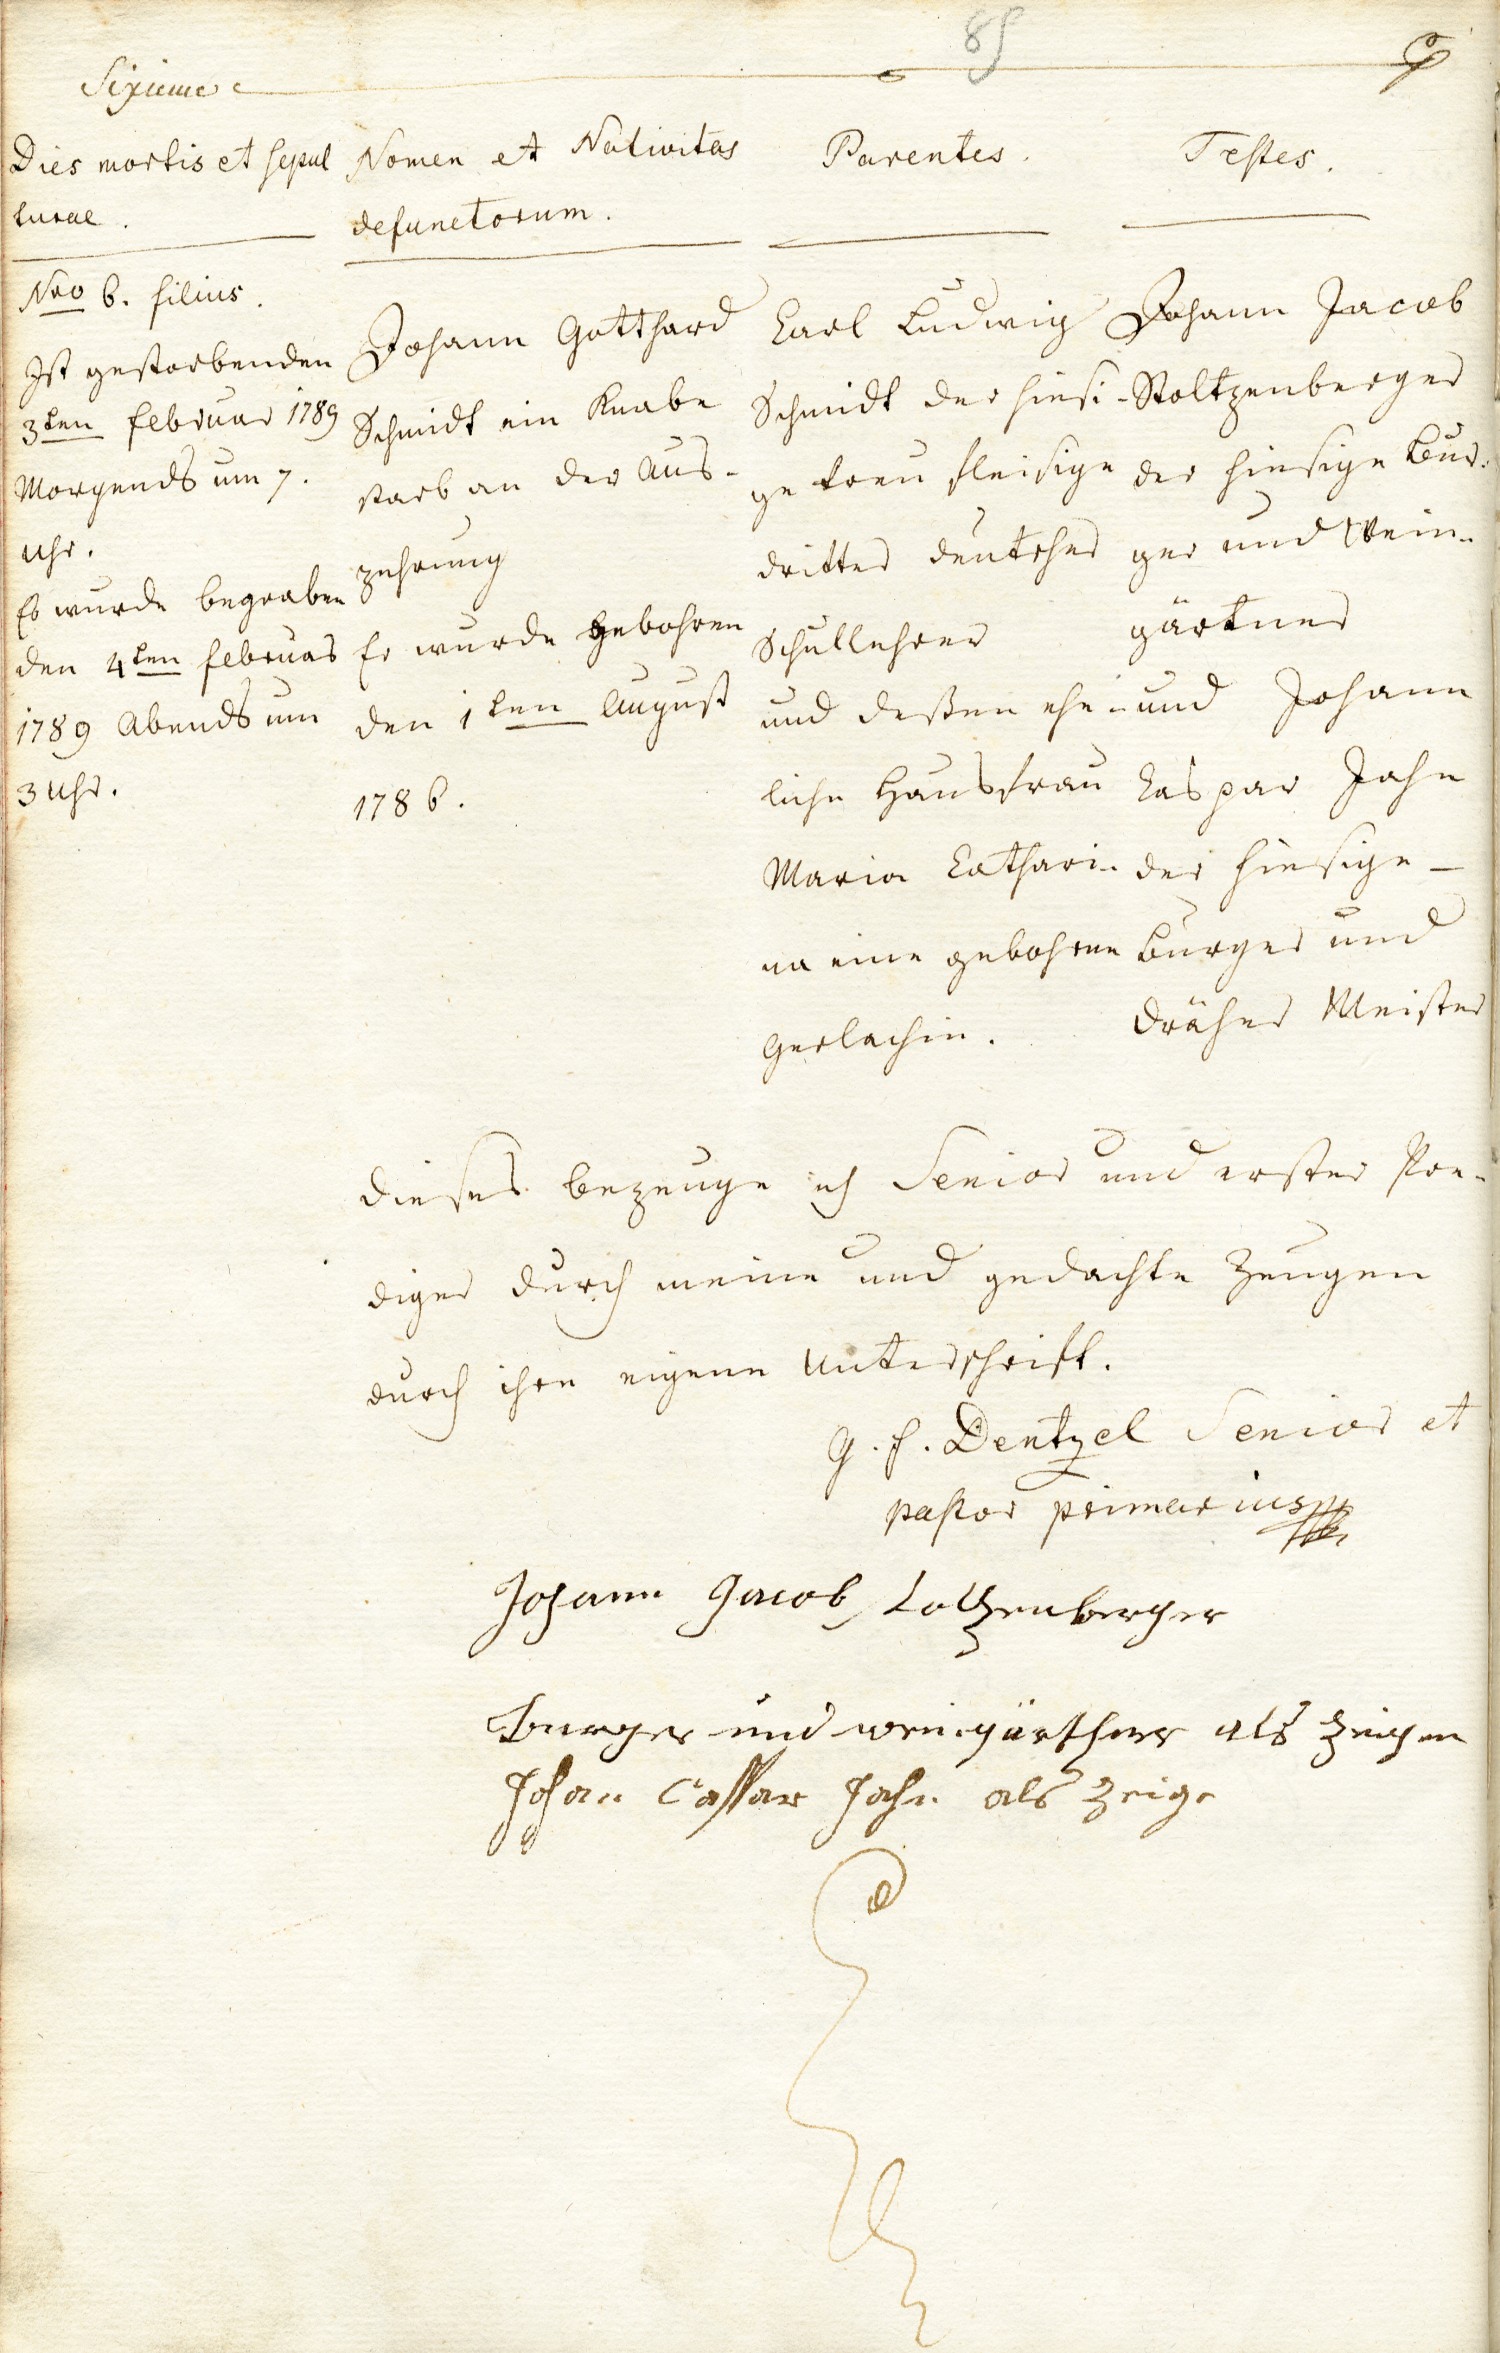 85
Sixieme
Dies mortis et sepul
turae.
Nro 6. filius.
Ist gestorben den
3ten Februar 1789
Morgends um 7.
Uhr.
Es wurde begraben
den 4ten Februar
1789 Abends um
3 Uhr.
Nomen et Nativitas
defunctorum.
Johann Gotthard
Schmidt ein Knabe
starb an der Aus-
zehrung
Er wurde gebohren
den 1ten August
1786.
Parentes.
Carl Ludwig
Schmidt der hiesi-
ge treu fleisige
dritter deutscher
Schullehrer
und deßen ehe-
liche Hausfrau
Maria Cathari-
na eine gebohrne
Gerlachin.
Testes.
Johann Jacob
Stoltzenberger
der hiesige Bur-
ger und Wein-
gärtner
und Johann
Caspar Jahn
der hiesige
Burger und
Dräher Meister
Dieses bezeuge ich Senior und erster Pre-
diger durch meine und gedachte Zeugen
durch ihre eigene Unterschrift.
G. F. Dentzel Senior et
pastor primarius
Johann Jacob Lotzenberger
burger und weingärthner als Zeigen
Johan Caspar Jahn als Zeige